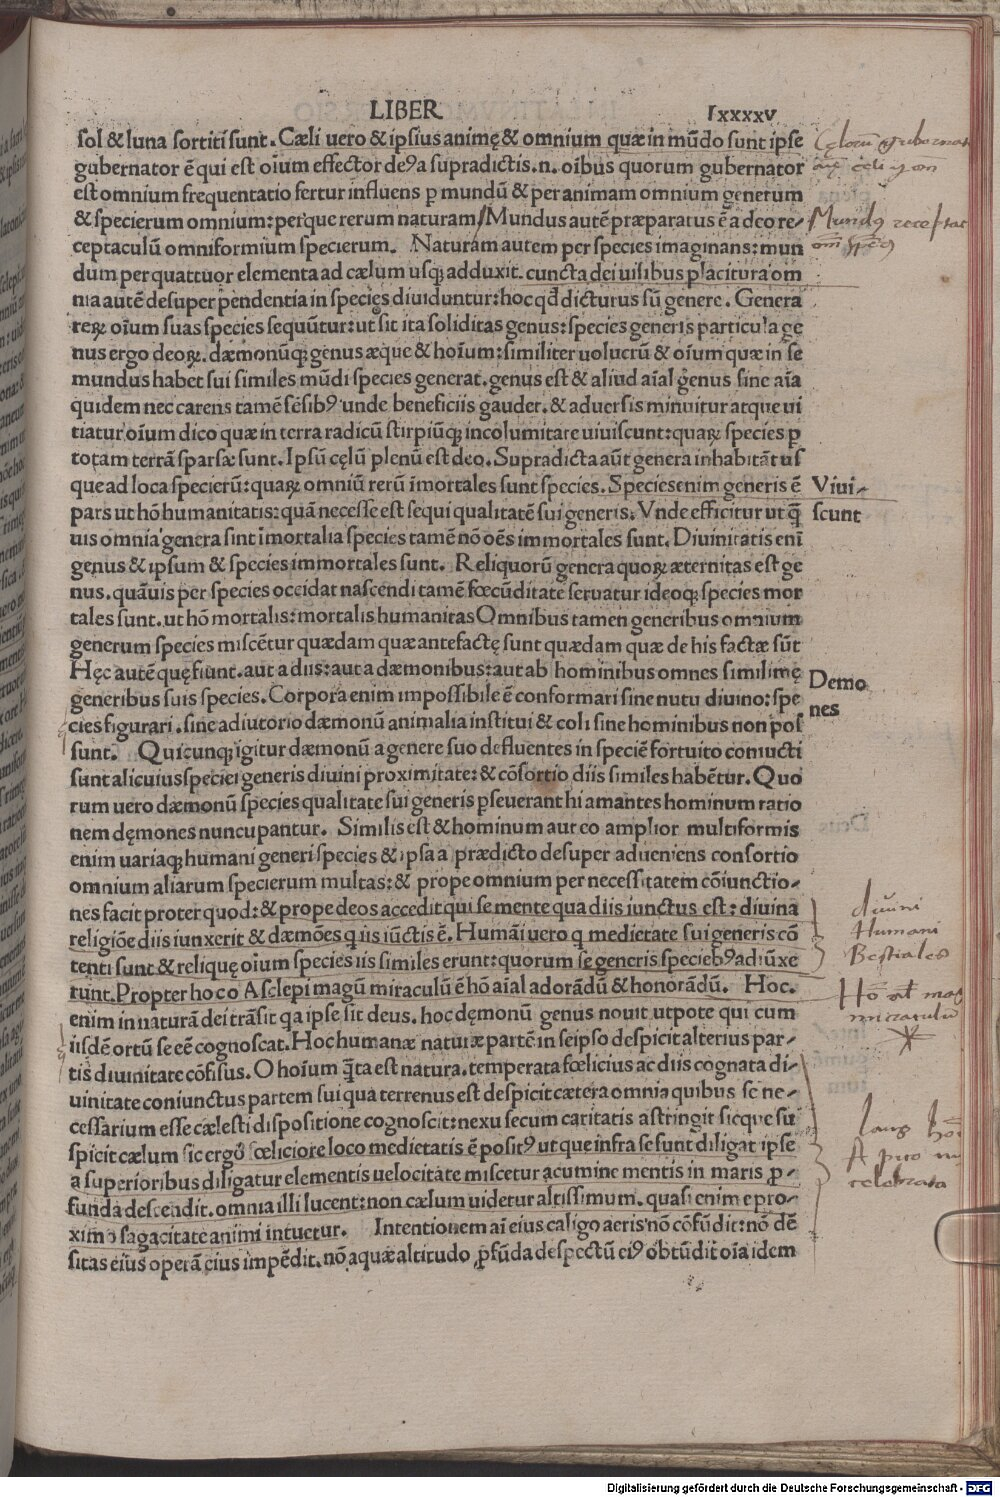 LIBER lxxxxv
sol & luna sortiti sunt. Cæli uero & ipsius animę & omnium quæ in mūdo sunt ipse
gubernator ē qui est oīum effector deꝰ a supradictis.n. oībus quorum gubernator
est omnium frequentatio fertur influens p mundū & per animam omnium generum
& specierum omnium: perque rerum naturam/Mundus autē præparatus ē a deo re/
ceptaculū omniformium specierum. Naturam autem per species imaginans: mun
dum per quattuor elementa ad cælum usqꝫ adduxit. cuncta dei uisibus placitura om
nia autē desuper pendentia in species diuiduntur: hoc qđ dicturus sū genere. Genera
rerꝝ oīum suas species sequūtur: ut sit ita soliditas genus: species generis particula ge
nus ergo deoꝝ. dæmonūqꝫ genus æque & hoīum: similiter uolucrū & oīum quæ in se
mundus habet sui similes mūdi species generat. genus est & aliud aīal genus sine aīa
quidem nec carens tamē sēsibꝰ unde beneficiis gaudet. & aduersis minuitur atque ui
tiatur oīum dico quæ in terra radicū stirpiūqꝫ incolumitate uiuiscunt: quaꝝ species p
totam terrā sparsæ sunt. Ipsū cęlū plenū est deo. Supradicta aūt genera inhabitāt us
que ad loca specierū: quaꝝ omniū rerū īmortales sunt species. Species enim generis ē
pars ut hō humanitatis: quā necesse est sequi qualitatē sui generis. Vnde efficitur ut q̄
uis omnia genera sint īmortalia species tamē nō oēs immortales sunt. Diuinitatis enī
genus & ipsum & species immortales sunt. Reliquorū genera quoꝝ æternitas est ge
nus. quāuis per species occidat nascendi tamē fœcūditate seruatur ideoqꝫ species mor
tales sunt. ut hō mortalis: mortalis humanitas Omnibus tamen generibus omnium
generum species miscētur quædam quæ ante factę sunt quædam quæ de his factæ sūt
Hęc autē quę fiunt. aut a diis: aut a dæmonibus: aut ab hominibus omnes similimę
generibus suis species. Corpora enim impossibile ē conformari sine nutu diuino: spe
cies figurari. sine adiutorio dæmonū animalia institui & coli sine hominibus non pos
sunt. Quicunqꝫ igitur dæmonū a genere suo defluentes in speciē fortuito coniucti
sunt alicuius speciei generis diuini proximitate: & cōsortio diis similes habētur. Quo
rum uero dæmonū species qualitate sui generis pseuerant hi amantes hominum ratio
nem dęmones nuncupantur. Similis est & hominum aut eo amplior multiformis
enim uariaqꝫ humani generi species & ipsa a prædicto desuper adueniens consortio
omnium aliarum specierum multas: & prope omnium per necessitatem cōiunctio/
nes facit proter quod: & prope deos accedit qui se mente qua diis iunctus est: diuina
religiōe diis iunxerit & dæmōes q iis iūctis ē. Humāi uero q medietate sui generis cō
tenti sunt & reliquę oīum species iis similes erunt: quorum se generis speciebꝰ adiūxe
runt. Propter hoc o Asclepi magū miraculū ē hō aīal adorādū & honorādū. Hoc.
enim in naturā dei trāsit qa ipse sit deus. hoc dęmonū genus nouit utpote qui cum
iisdē ortū se eē cognoscat. Hoc humanæ naturæ partē in seipso despicit alterius par/
tis diuinitate cōfisus. O hoīum q̄ta est natura. temperata fœlicius ac diis cognata di/
uinitate coniunctus partem sui qua terrenus est despicit cætera omnia quibus se ne/
cessarium esse cælesti dispositione cognoscit: nexu secum caritatis astringit sicque su
spicit cælum sic ergo fœliciore loco medietatis ē positꝰ ut que infra se sunt diligat ipse
a superioribus diligatur elementis uelocitate miscetur acumine mentis in maris p/
funda descendit. omnia illi lucent: non cælum uidetur altissimum. quasi enim e pro/
ximo sagacitate animi intuetur. Intentionem aī eius caligo aeris nō cōfūdit: nō dē
sitas eius operā eius impēdit. nō aquæ altitudo pfūda despectū eiꝰ obtūdit oīa idem
Mundꝰ receptac
Viui/
scunt
Demo
nes
diuini
Humani
Bestiales
Hō al mag
miraculū
laus hōi
A pico
celebrata
Digitalisierung gefördert durch die Deutsche Forschungsgemeinschaft - DFG